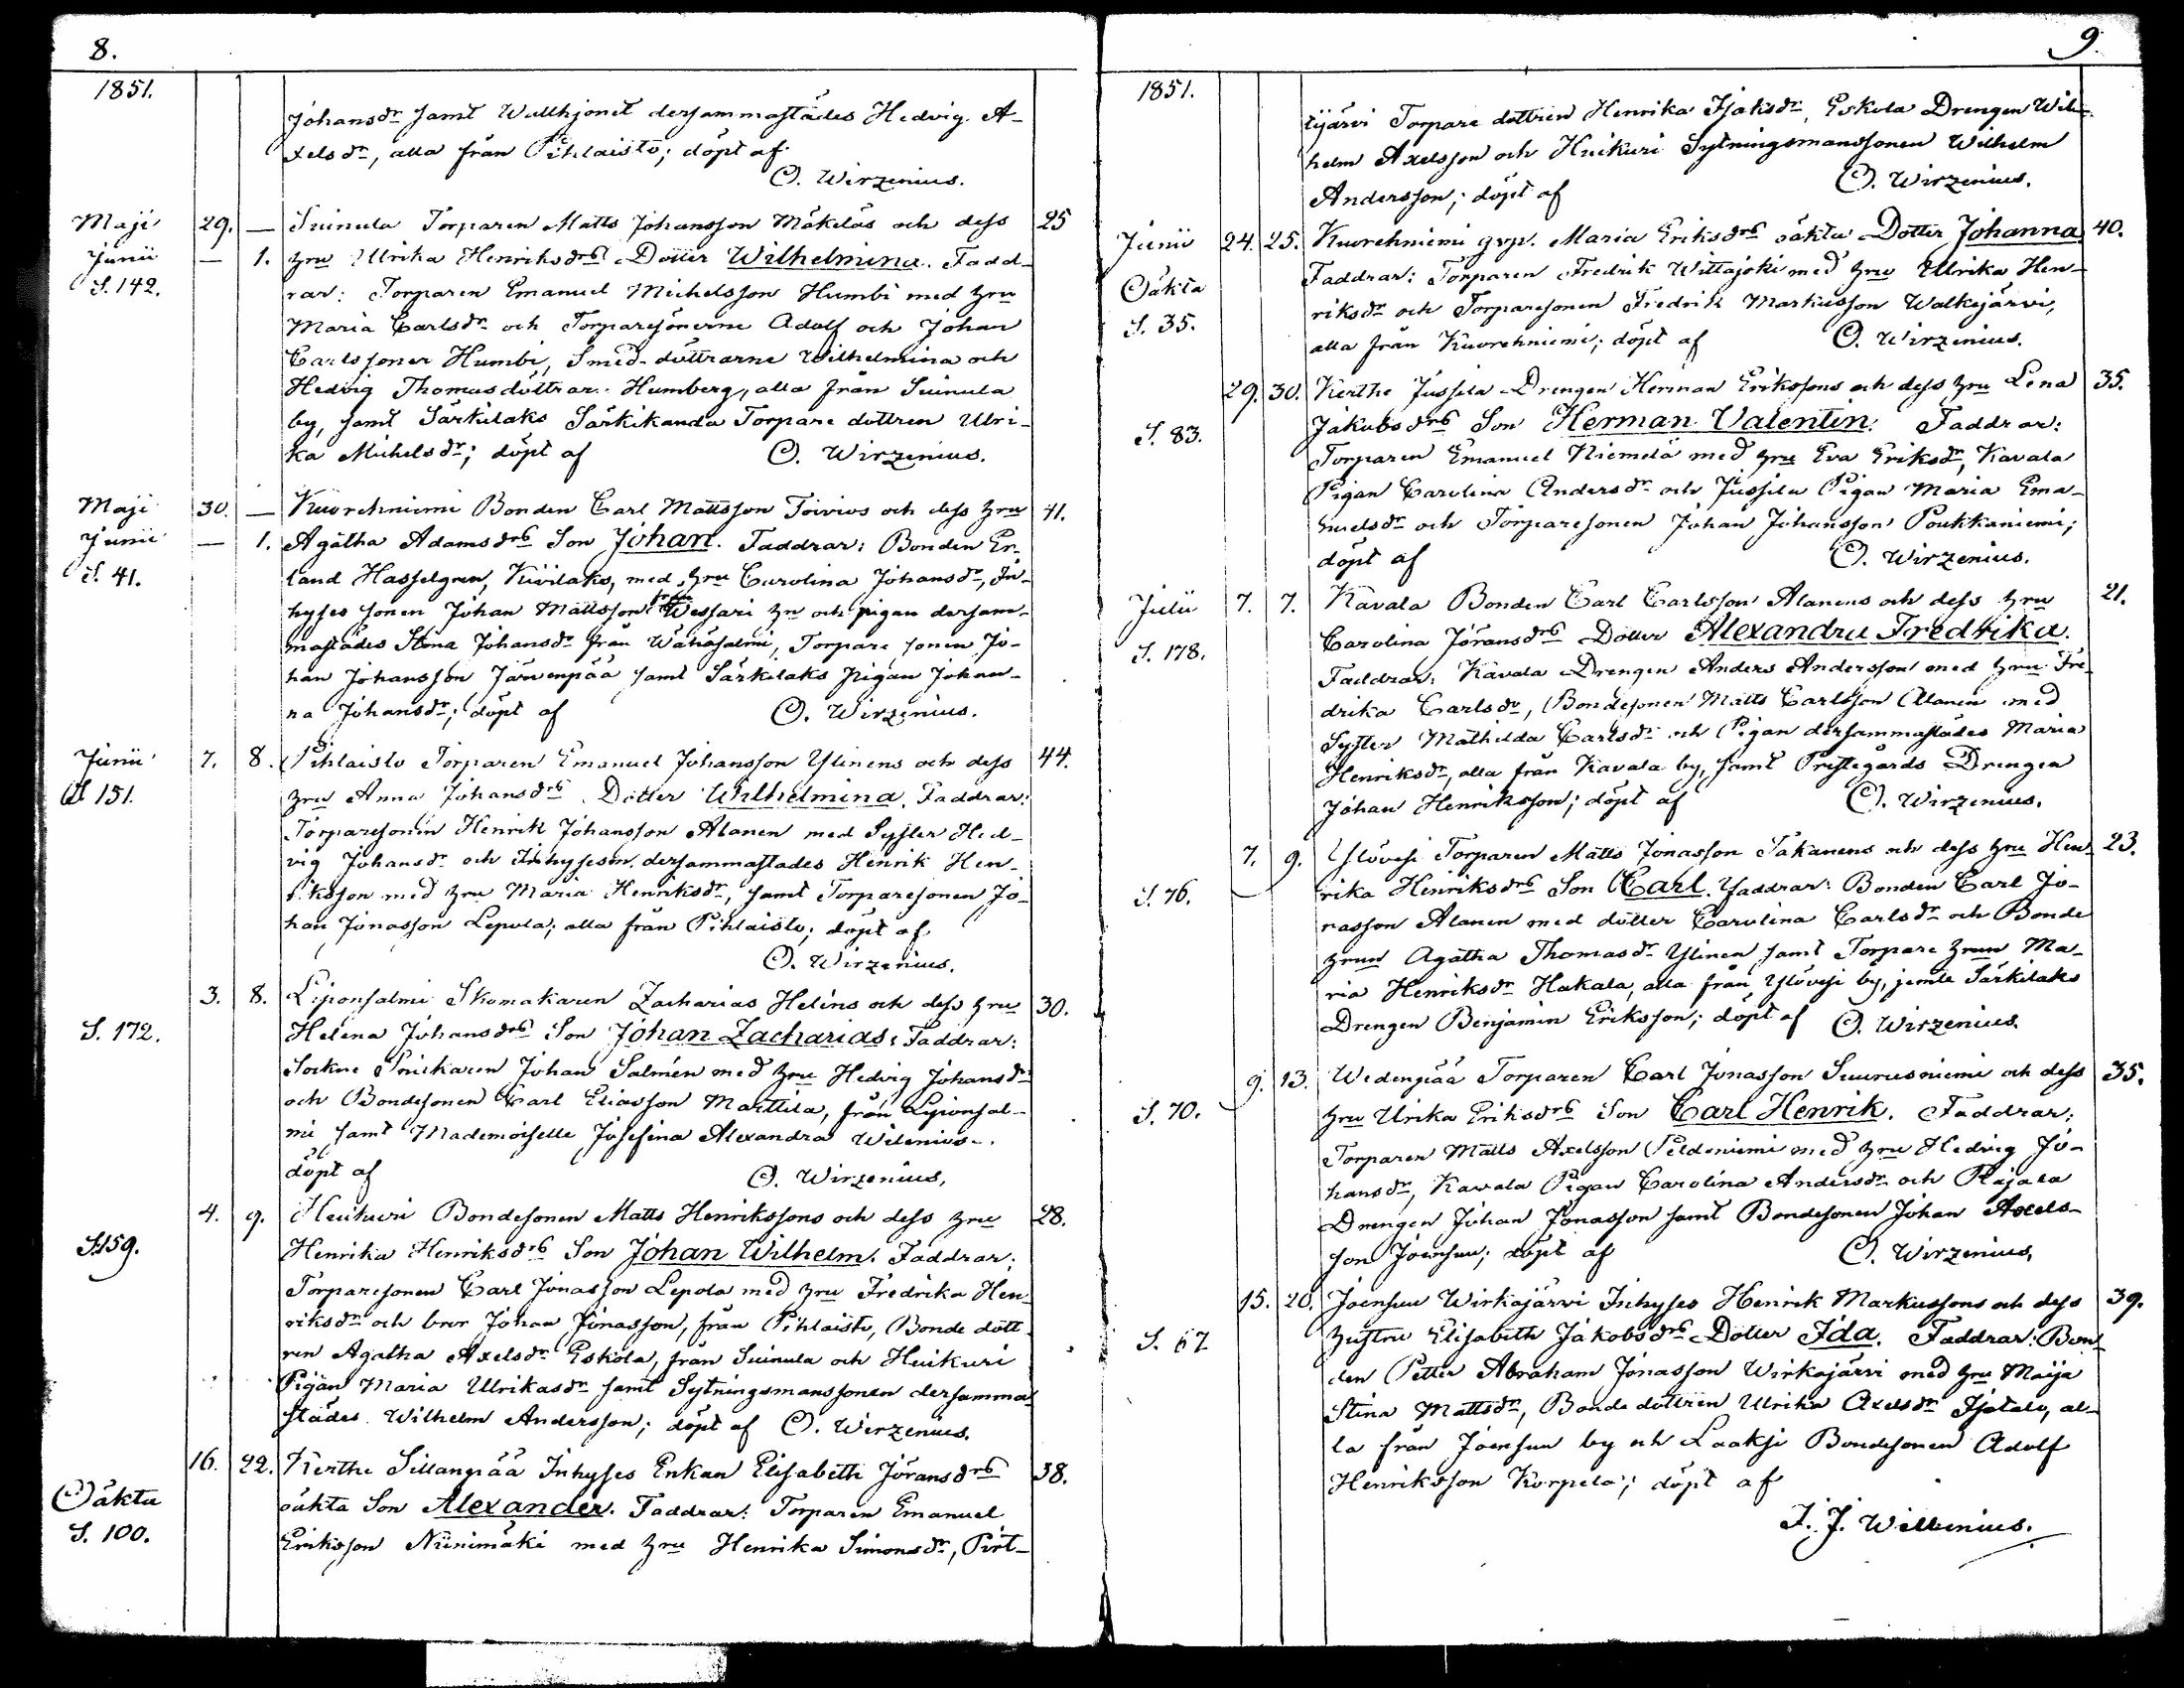 8.
1851.
Johansdr samt Wallhjonet dersammastädes Hedvig A-
xelsdr, alla från Pihlaisto; döpt af
O. Wirzenius.
Maji 29. — Suinula Torparen Matts Johansson Mäkeläs och dess 25
Junii — 1. hru Ulrika Henriksdrs Dotter Wilhelmina. Fadd-
S. 142. rar: Torparen Emanuel Michelsson Humbi med hru
Maria Carlsdr och Torparesönerne Adolf och Johan
Carlssoner Humbi, Smed-döttrarne Wilhelmina och
Hedvig Thomasdöttrar Humberg, alla från Suinula
by, samt Särkilaks Särkikanda Torpare dottren Ulri-
ka Michelsdr; döpt af O. Wirzenius.
Maji 30. — Kuorehniemi Bonden Carl Mattsson Toivios och dess hru 41.
Junii — 1. Agatha Adamsdrs Son Johan. Faddrar: Bonden Er-
S. 41. land Hasselgren, Kivilaks, med hru Carolina Johansdr, In-
hyses sonen Johan Mattsson från Wessari hn och pigan dersam-
mastädes Stina Johansdr från Wähäsalmi, Torpare sonen Jo-
han Johansson Järvenpää samt Särkilaks pigan Johan-
na Johansdr; döpt af O. Wirzenius.
Junii 7. 8. Pihlaisto Torparen Emanuel Johansson Ylinens och dess 44.
S. 151. hru Anna Johansdrs Dotter Wilhelmina. Faddrar:
Torparesonen Henrik Johansson Alanen med Syster Hed-
vig Johansdr och Inhysesen dersammastades Henrik Hen-
riksson med hru Maria Henriksdr, samt Torparesonen Jo-
han Jonasson Lepola; alla från Pihlaisto; döpt af
O. Wirzenius.
3. 8. Liponsalmi Skomakaren Zacharias Heléns och dess hru 30.
S. 172. Helena Johansdrs Son Johan Zacharias. Faddrar:
Sockne Snickaren Johan Salmén med hru Hedvig Johansdr
och Bondesonen Carl Eliasson Marttila, från Liponsal-
mi samt Mademoiselle Josefina Alexandra Wilenius.
döpt af O. Wirzenius.
4. 9. Huikuri Bondesonen Matts Henrikssons och dess hru 28.
S. 159. Henrika Henriksdrs Son Johan Wilhelm. Faddrar:
Torparesonen Carl Jonasson Lepola med hru Fredrika Hen-
riksdr och bror Johan Jonasson, från Pihlaisto, Bonde dott-
ren Agatha Axelsdr Eskola, från Suinula och Huikuri
Pigan Maria Ulrikasdr samt Sytningsmanssonen dersamma-
städes Wilhelm Andersson; döpt af O. Wirzenius.
16. 22. Kerthe Sillanpää Inhyses Enkan Elisabeth Jöransdrs 38.
Oäkta oäkta Son Alexander. Faddrar: Torparen Emanuel
S. 100. Eriksson Niinimäki med hru Henrika Simonsdr, Pirt-
9.
1851.
tijärvi Torpare dottren Henrika Isaksdr, Eskola Drengen Wil-
helm Axelsson och Huikuri Sytningsmanssonen Wilhelm
Andersson; döpt af O. Wirzenius.
Junii 24. 25. Kuorehniemi qvp. Maria Eriksdrs oäkta Dotter Johanna 40.
Oäkta Faddrar: Torparen Fredrik Wittajoki med hru Ulrika Hen-
S. 35. riksdr och Torparesonen Fredrik Markusson Walkejärvi,
alla från Kuorehniemi; döpt af O. Wirzenius.
29. 30. Kerthe Jussila Drengen Herman Erikssons och dess hru Lena 35.
S. 83. Jakobsdrs Son Herman Valentin. Faddrar:
Torparen Emanuel Niemelä med hru Eva Eriksdr, Kavala
Pigan Carolina Andersdr och Jussila Pigan Maria Ema-
nuelsdr och Torparesonen Johan Johansson Poukkaniemi;
döpt af O. Wirzenius.
Julii 7. 7. Kavala Bonden Carl Carlsson Alanens och dess hru 21.
Carolina Jöransdrs Dotter Alexandra Fredrika.
S. 178. Faddrar: Kavala Drengen Anders Andersson med hru Fre-
drika Carlsdr, Bondesonen Matts Carlsson Alanen med
Syster Mathilda Carlsdr och Pigan dersammastädes Maria
Henriksdr, alla från Kavala by, samt Prestegårds Drengen
Johan Henriksson; döpt af O. Wirzenius.
7. 9. Ylövesi Torparen Matts Jonasson Takanens och dess hru Hen- 23.
S. 76. rika Henriksdrs Son Carl. Faddrar: Bonden Carl Jo-
nasson Alanen med dotter Carolina Carlsdr och Bonde
hrun Agatha Thomasdr Ylinen samt Torpare hrun Ma-
ria Henriksdr Hakala, alla från Ylövesi by, jemte Särkilaks
Drengen Benjamin Eriksson; döpt af O. Wirzenius.
9. 13. Wedenpää Torparen Carl Jonasson Suurusniemi och dess 35.
S. 70. hru Ulrika Eriksdrs Son Carl Henrik. Faddrar:
Torparen Matts Axelsson Peldoniemi med hru Hedvig Jo-
hansdr, Kavala Pigan Carolina Andersdr och Rajala
Drengen Johan Jonasson samt Bondesonen Johan Axels-
son Joensuu; döpt af O. Wirzenius.
15. 20. Joensuu Wirkajärvi Inhyses Henrik Markussons och dess 39.
S. 67 hustru Elisabeth Jakobsdrs Dotter Ida. Faddrar: Bon-
den Petter Abraham Jonasson Wirkajärvi med hru Maija
Stina Mattsdr, Bonde dottren Ulrika Axelsdr Isotalo, al-
la från Joensuu by och Laaksi Bondesonen Adolf
Henriksson Korpela; döpt af
I. J. Willenius.